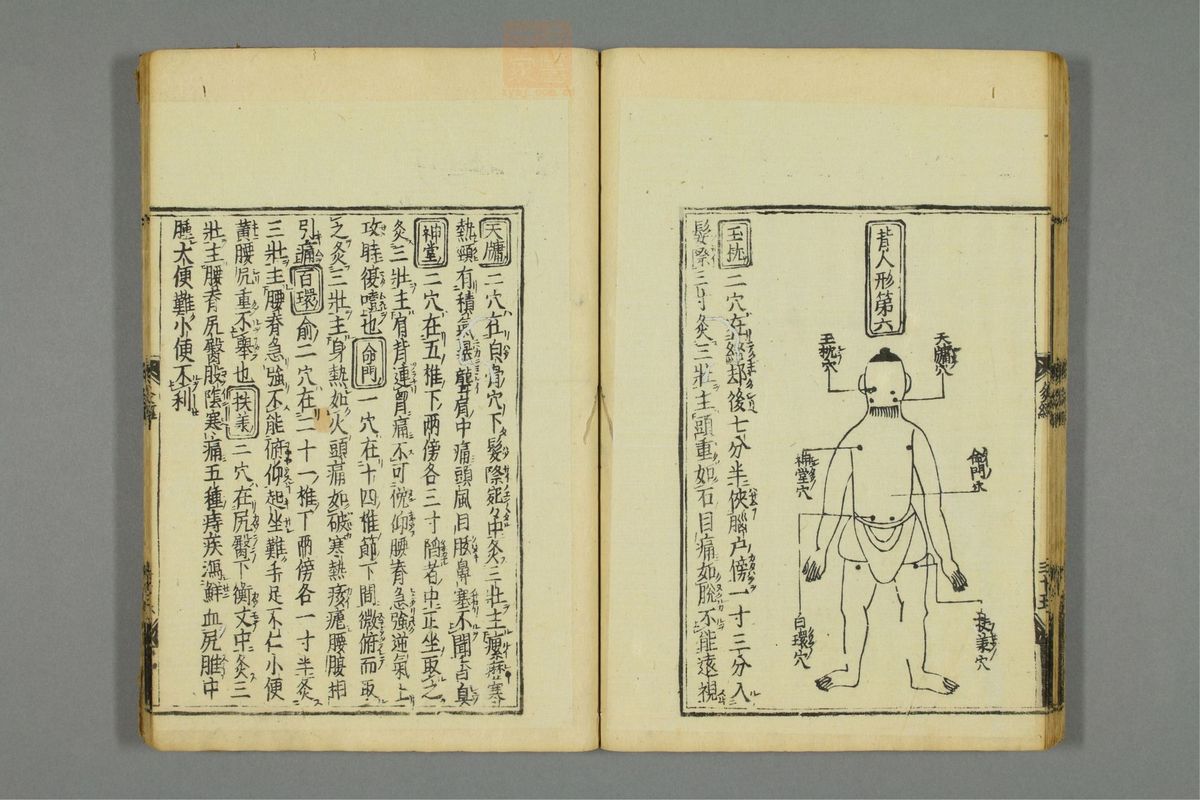 背人形第六
天牖穴
玉枕穴
命門穴
神堂穴
扶兼穴
白環穴
玉枕 二穴在絡却後七分半俠腦户傍一寸三分入
髮際三寸灸三壯主頭重如石目痛如脫不能遠視
天牖 二穴在白骨穴下髮際宛中灸三壯主瘰癧寒
熱頸有積氣暴聾肩中痛頭風目眩鼻塞不聞香臭
神堂 二穴在五椎下兩傍各三寸陷者中正坐取之
灸三壯主肩背連胷痛不可俛仰腰脊急強逆氣上
攻時復噎也 命門 一穴在十四椎節下間微俯而取
之灸三壯主身熱如火頭痛如破寒熱痎瘧腰腹相
引痛 百環俞 二穴在二十一椎下兩傍各一寸半灸
三壯主腰脊急強不能俯仰起坐難手足不仁小便
黄腰尻重不舉也 扶兼 二穴在尻臀下衡文中灸三
壯主腰脊尻臀股陰寒痛五種痔疾瀉鮮血尻脽中
腫大便難小便不利
灸經
三十五